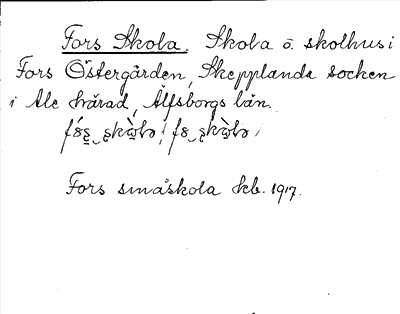 Fors Skola. Skola o. skolhus i
Fors Östergården, Skepplanda socken
i Ale härad, Älfsborgs län.
Fors småskola kb. 1917.